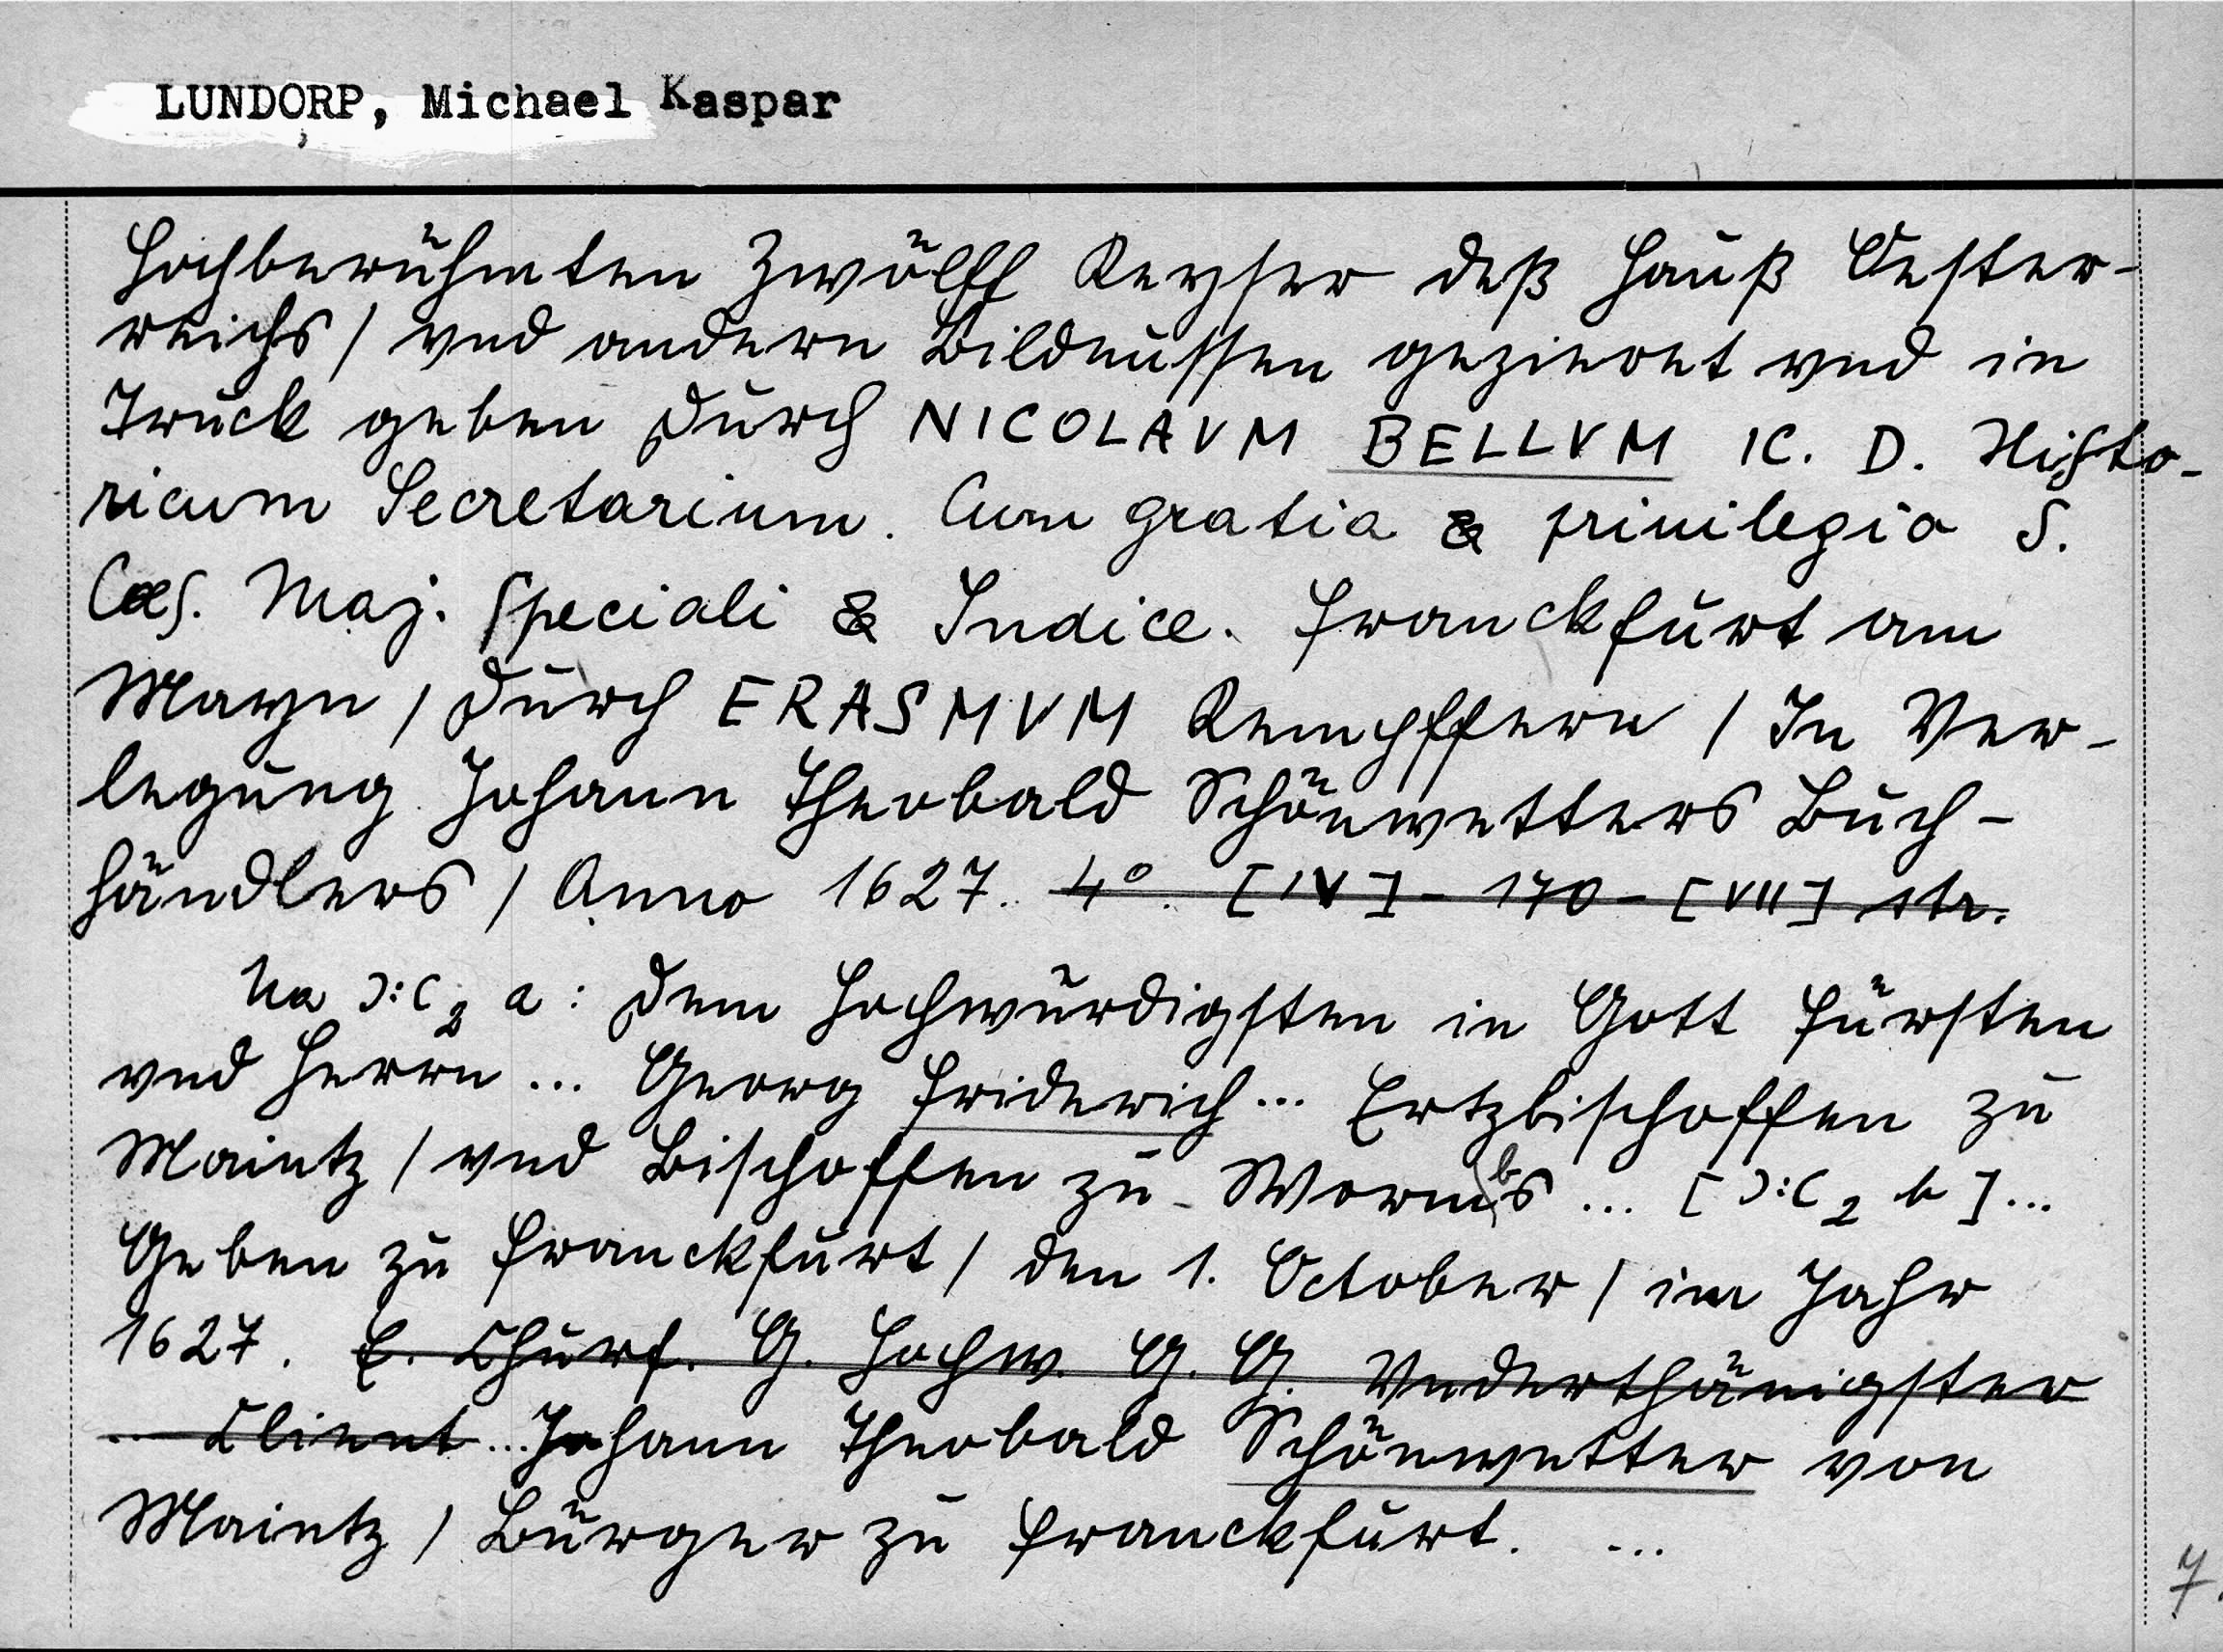 LUNDORP, Michael Kaspar
Hochberühmten Zwölff Keyser deß Hauß Oester-
reichs / vnd andern Bildnussen gezieret vnd in
Truck geben Durch NICOLAVM BELLVM IC. D. Histo-
ricum Secretarium. Cum gratia & priuilegio S.
Cæs. Maj. speciali & Indice. Franckfurt am
Mayn / Durch ERASMVM Kempffern / In Ver-
legung Johann Theobald Schönwetters Buch-
händlers / Anno 1627. 4°. [IV] - 170 - [VII] str.
Na ):( 2 a: Dem Hochwürdigsten in Gott Fürsten
vnd Herrn ... Georg Friderich ... Ertzbischoffen zu
Maintz / vnd Bischoffen zu Wormbs ... [ ):( 2 b ] ...
Geben zu Franckfurt / den 1. October / im Jahr
1627. E. Churf. G. Hochw. G. G. Vnderthänigster
... Client ... Johann Theobald Schönwetter von
Maintz / Bürger zu Franckfurt. ...
7.